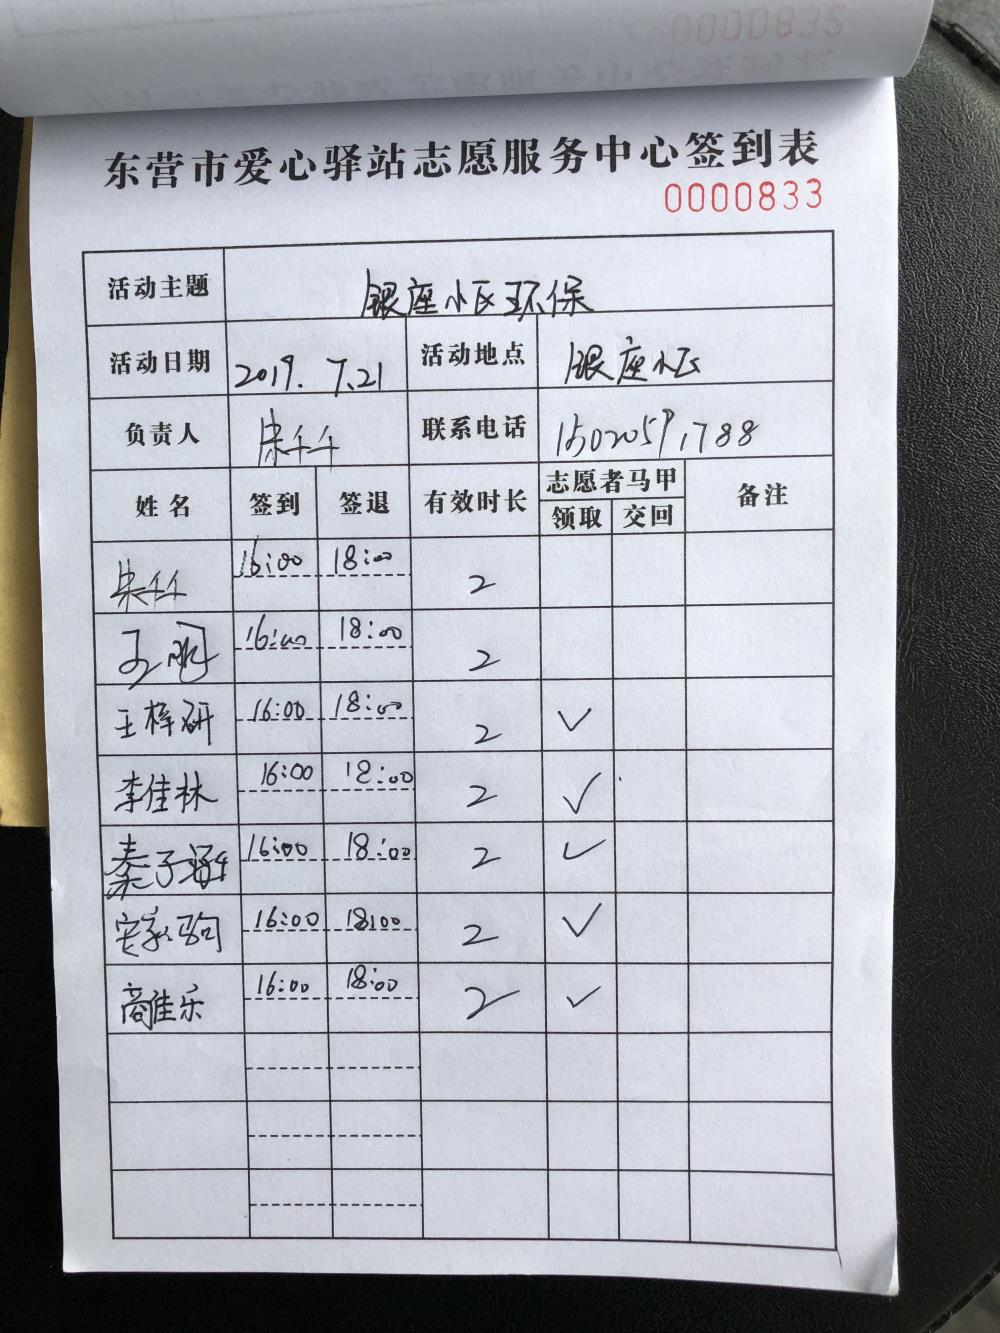 0000832
东营市爱心驿站志愿服务中心签到表
0000833
活动主题 银座小区环保
活动日期 2019.7.21 活动地点 银座小区
负责人 宋千千 联系电话 15020591788
姓名 签到 签退 有效时长 志愿者马甲 备注
领取 交回
宋千千 16:00 18:00 2
16:00 18:00 2
王梓研 16:00 18:00 2 ✓
李佳林 16:00 18:00 2 ✓
秦子涵 16:00 18:00 2 ✓
16:00 18:00 2 ✓
商佳乐 16:00 18:00 2 ✓